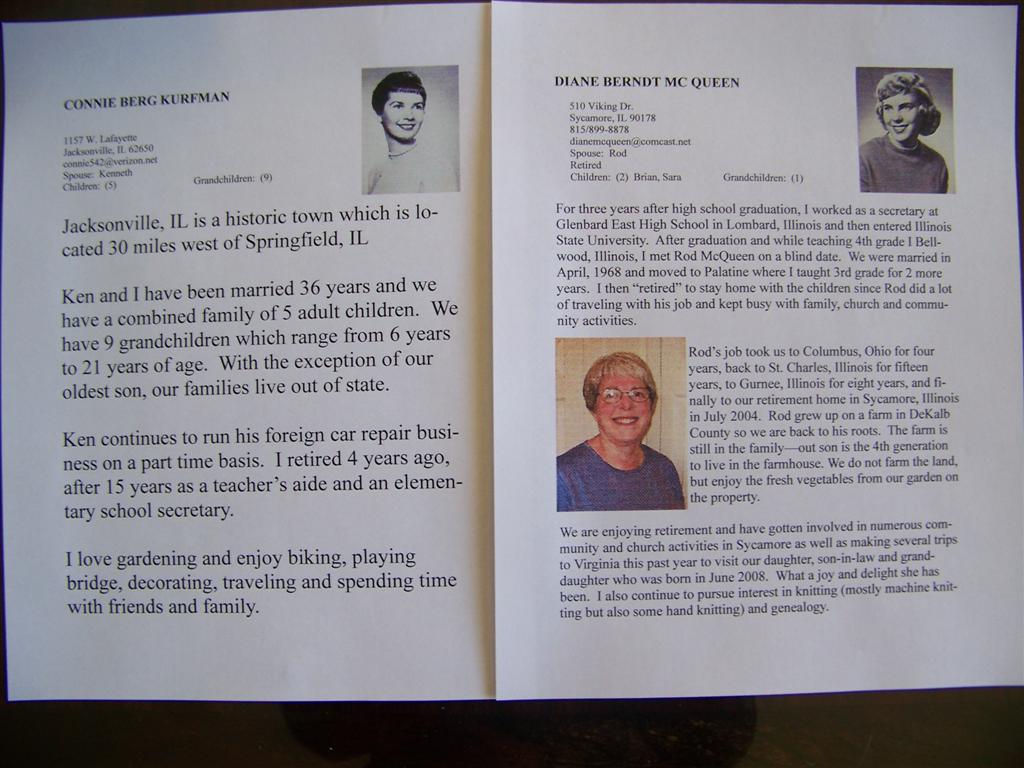 CONNIE BERG KURFMAN
1157 W. Lafayette
Jacksonville, IL 62650
connie542@verizon.net
Spouse: Kenneth
Children: (5)
Grandchildren: (9)
Jacksonville, IL is a historic town which is lo-
cated 30 miles west of Springfield, IL
Ken and I have been married 36 years and we
have a combined family of 5 adult children. We
have 9 grandchildren which range from 6 years
to 21 years of age. With the exception of our
oldest son, our families live out of state.
Ken continues to run his foreign car repair busi-
ness on a part time basis. I retired 4 years ago,
after 15 years as a teacher's aide and an elemen-
tary school secretary.
I love gardening and enjoy biking, playing
bridge, decorating, traveling and spending time
with friends and family.
DIANE BERNDT MC QUEEN
510 Viking Dr.
Sycamore, IL 90178
815/899-8878
dianemcqueen@comcast.net
Spouse: Rod
Retired
Children: (2) Brian, Sara
Grandchildren: (1)
For three years after high school graduation, I worked as a secretary at
Glenbard East High School in Lombard, Illinois and then entered Illinois
State University. After graduation and while teaching 4th grade I Bell-
wood, Illinois, I met Rod McQueen on a blind date. We were married in
April, 1968 and moved to Palatine where I taught 3rd grade for 2 more
years. I then “retired” to stay home with the children since Rod did a lot
of traveling with his job and kept busy with family, church and commu-
nity activities.
Rod's job took us to Columbus, Ohio for four
years, back to St. Charles, Illinois for fifteen
years, to Gurnee, Illinois for eight years, and fi-
nally to our retirement home in Sycamore, Illinois
in July 2004. Rod grew up on a farm in DeKalb
County so we are back to his roots. The farm is
still in the family—out son is the 4th generation
to live in the farmhouse. We do not farm the land,
but enjoy the fresh vegetables from our garden on
the property.
We are enjoying retirement and have gotten involved in numerous com-
munity and church activities in Sycamore as well as making several trips
to Virginia this past year to visit our daughter, son-in-law and grand-
daughter who was born in June 2008. What a joy and delight she has
been. I also continue to pursue interest in knitting (mostly machine knit-
ting but also some hand knitting) and genealogy.